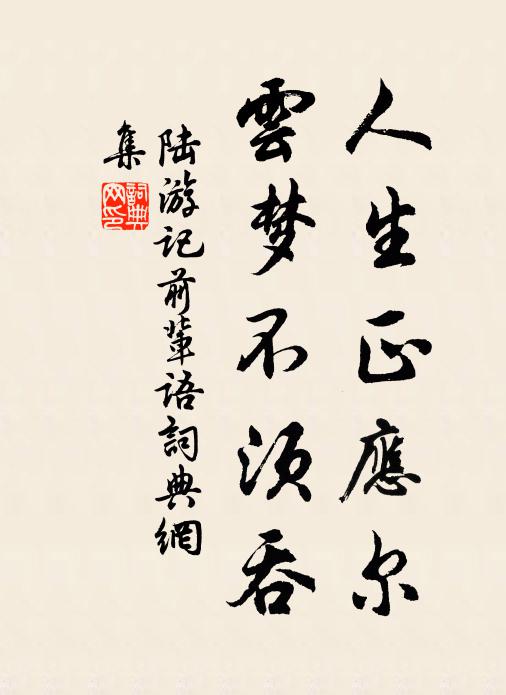 人生正應尔
雲梦不须吞
陆游记前輩语詞典網
集
詞典网印